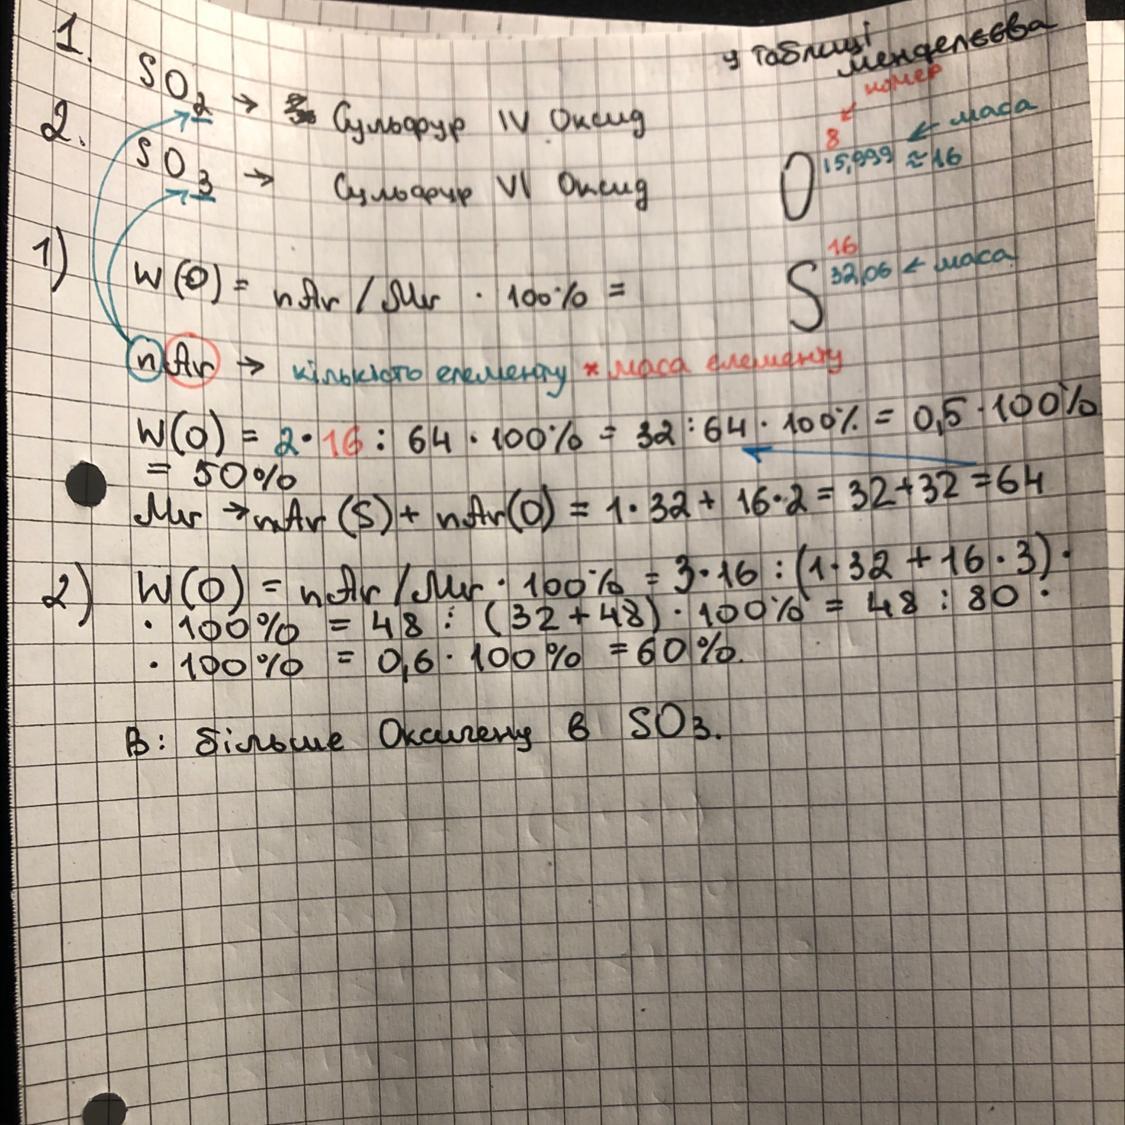 у таблиці
менделєєва
номер
1. SO2 → Сульфур IV Оксид
8 ← маса
O 15,999 ≈ 16
2. SO3 → Сульфур VI Оксид
16
S 32,06 ← маса
1) W(O) = nAr / Mr · 100% =
nAr → кількість елементу * маса елементу
W(O) = 2·16 : 64 · 100% = 32 : 64 · 100% = 0,5 · 100%
= 50%
Mr → nAr (S) + nAr(O) = 1·32 + 16·2 = 32+32 = 64
2) W(O) = nAr/Mr · 100% = 3·16 : (1·32 + 16·3) ·
· 100% = 48 : (32+48) · 100% = 48 : 80 ·
· 100% = 0,6 · 100% = 60%.
В: більше Оксигену в SO3.